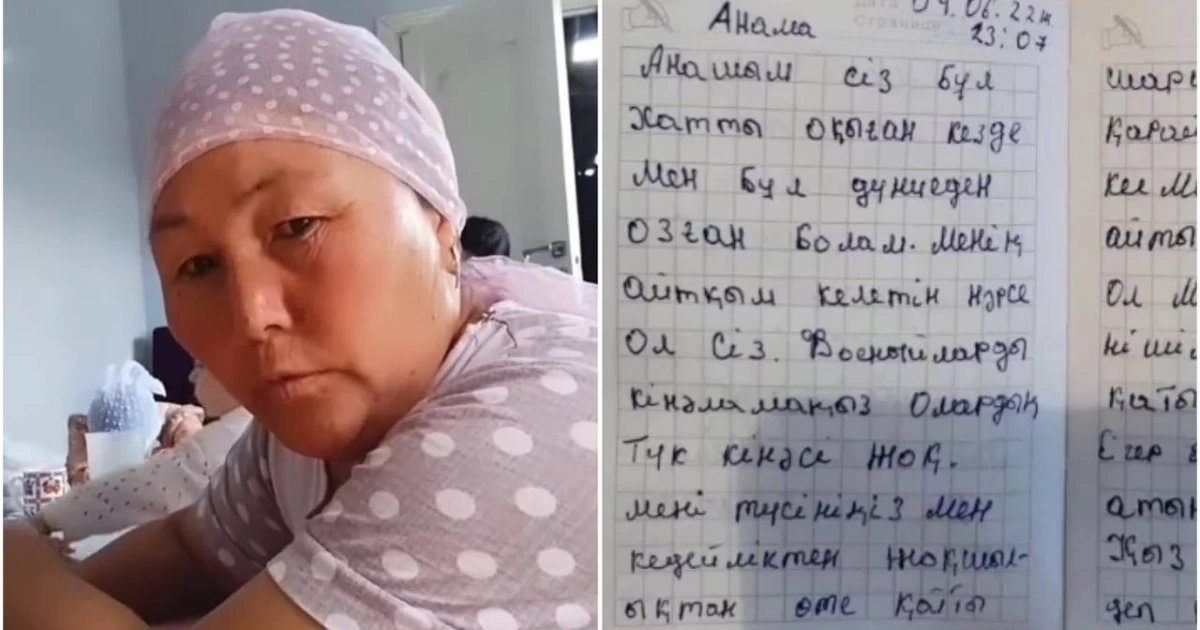 Анама
04.06.22ж
Страница
23:07
Анашым сіз бұл
хатты оқыған кезде
Мен бұл дүниеден
озған болам. Менің
айтқым келетін нәрсе
Ол Сіз. Военыйларды
кінәламаңыз Олардың
Түк кінәсі жоқ.
мені түсініңіз мен
кедейліктен жоқшыл-
ықтан өте қатты
айты
Ол М
қаты
Егер
атын
Қыз
деп